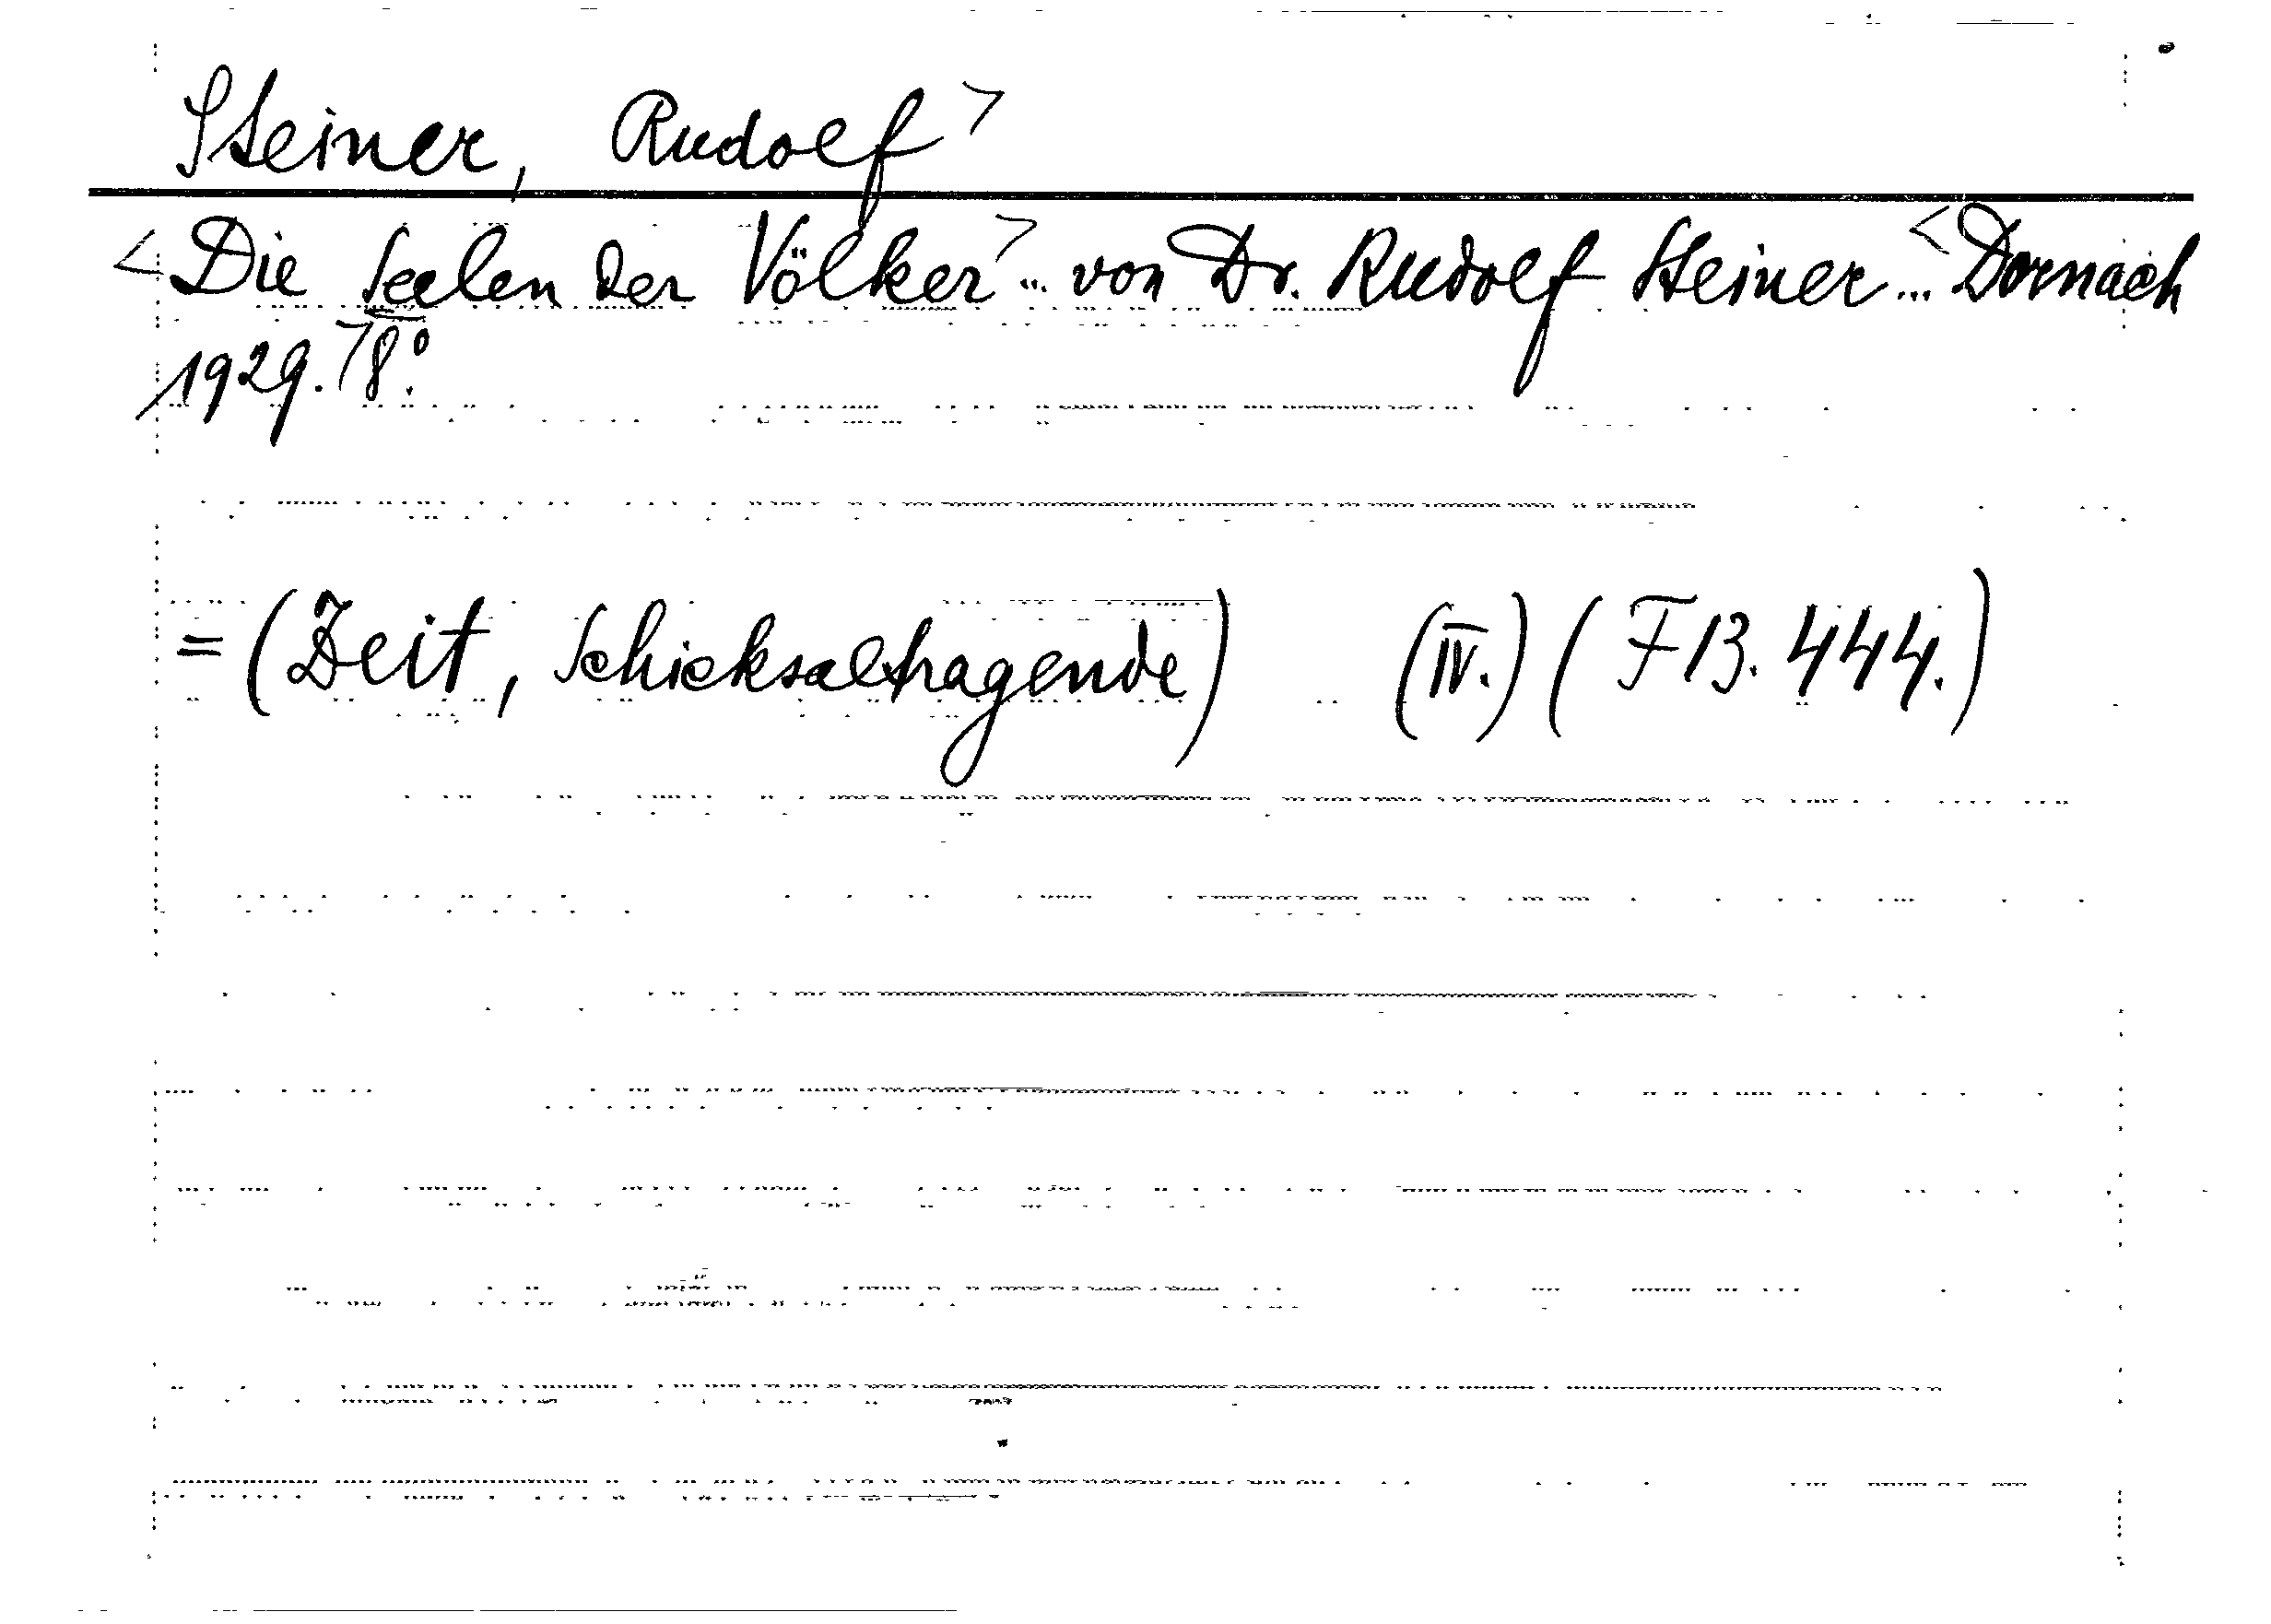 Steiner, Rudolf>
<Die Seelen der Völker>... von Dr. Rudolf Steiner...<Dornach
1929.> 8°.
= (Zeit, Schicksaltragende) (IV.) (FB. 444.)